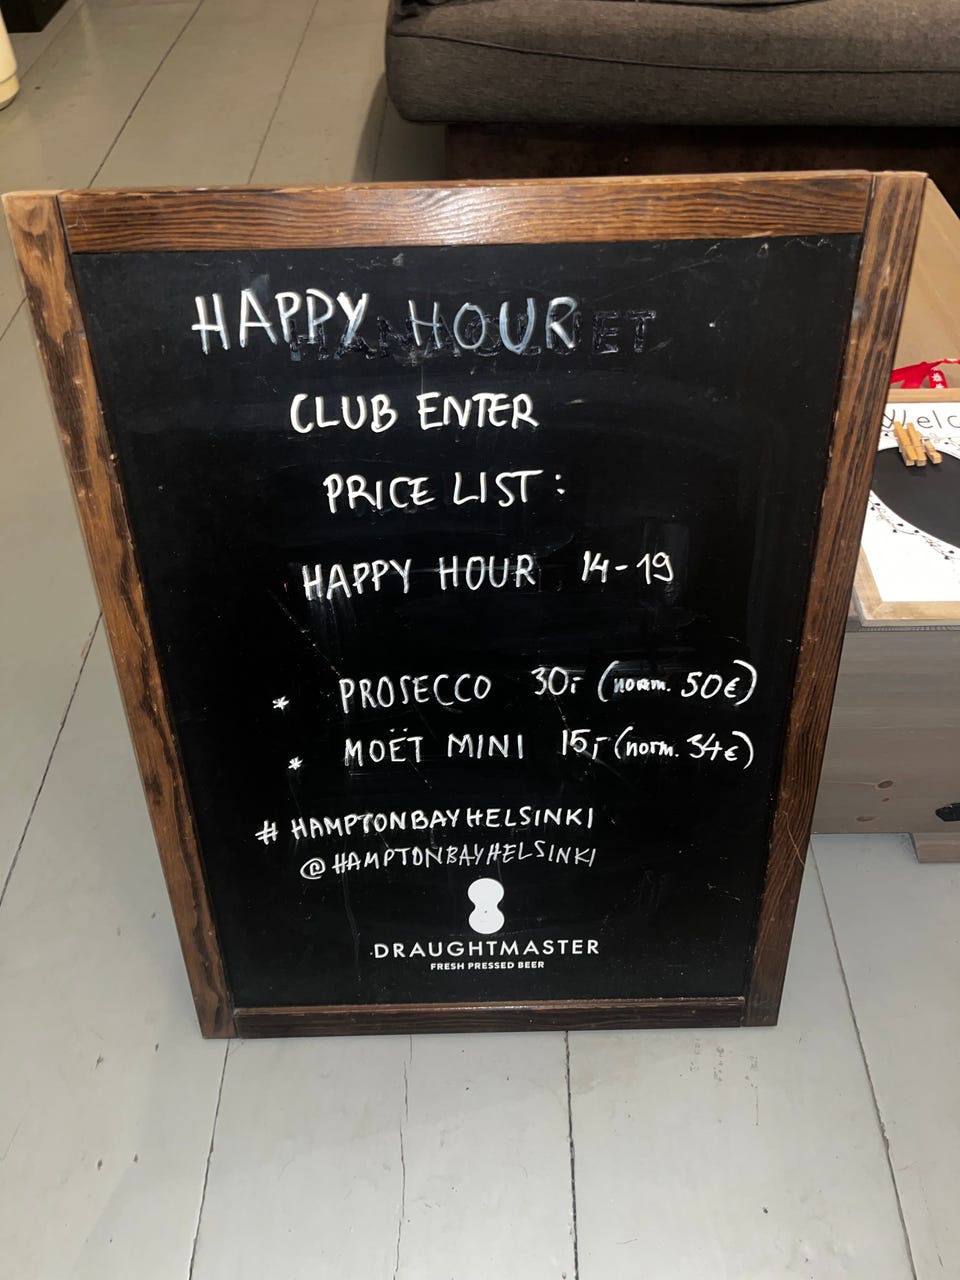 HAPPY HOUR
CLUB ENTER
PRICE LIST:
HAPPY HOUR 14-19
* PROSECCO 30,- (norm. 50€)
* MOËT MINI 15,- (norm. 34€)
# HAMPTONBAYHELSINKI
@HAMPTONBAYHELSINKI
DRAUGHTMASTER
FRESH PRESSED BEER